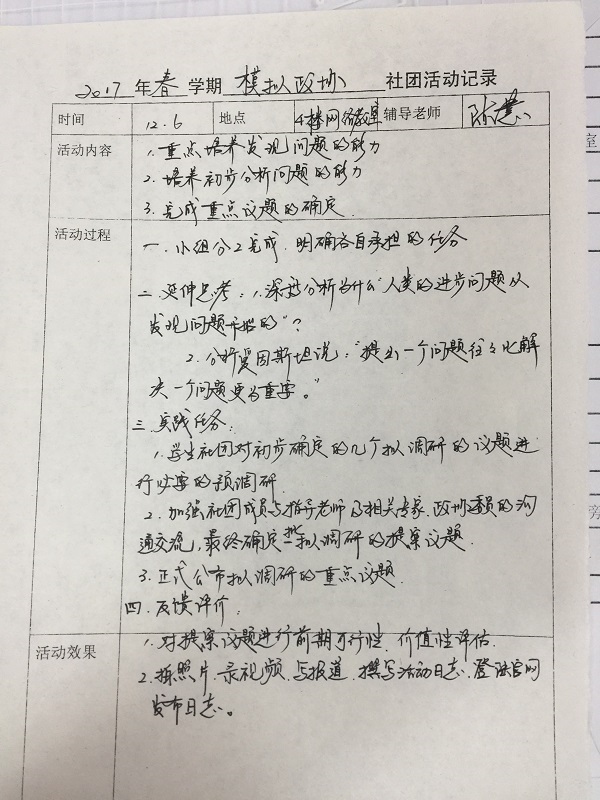 2017 年 春 学期 模拟政协 社团活动记录
时间 12.6 地点 4楼网络教室 辅导老师 陈慧
活动内容 1.重点培养发现问题的能力
2.培养初步分析问题的能力
3.完成重点议题的确定.
活动过程 一.小组分工完成.明确各自承担的任务
二.延伸思考:1.深度分析为什么"人类的进步问题从
发现问题开始的"?
2.分析爱因斯坦说:"提出一个问题往往比解
决一个问题更为重要。"
三.实践任务:
1.学生社团对初步确定的几个拟调研的议题进
行必要的预调研.
2.加强社团成员与指导老师及相关专家.政协委员的沟
通交流,最终确定一批拟调研的提案议题.
3.正式公布拟调研的重点议题.
四.反馈评价:
1.对提案议题进行前期可行性.价值性评估.
活动效果 2.拍照片.录视频.写报道.撰写活动日志.登陆官网
发布日志。
室
旁